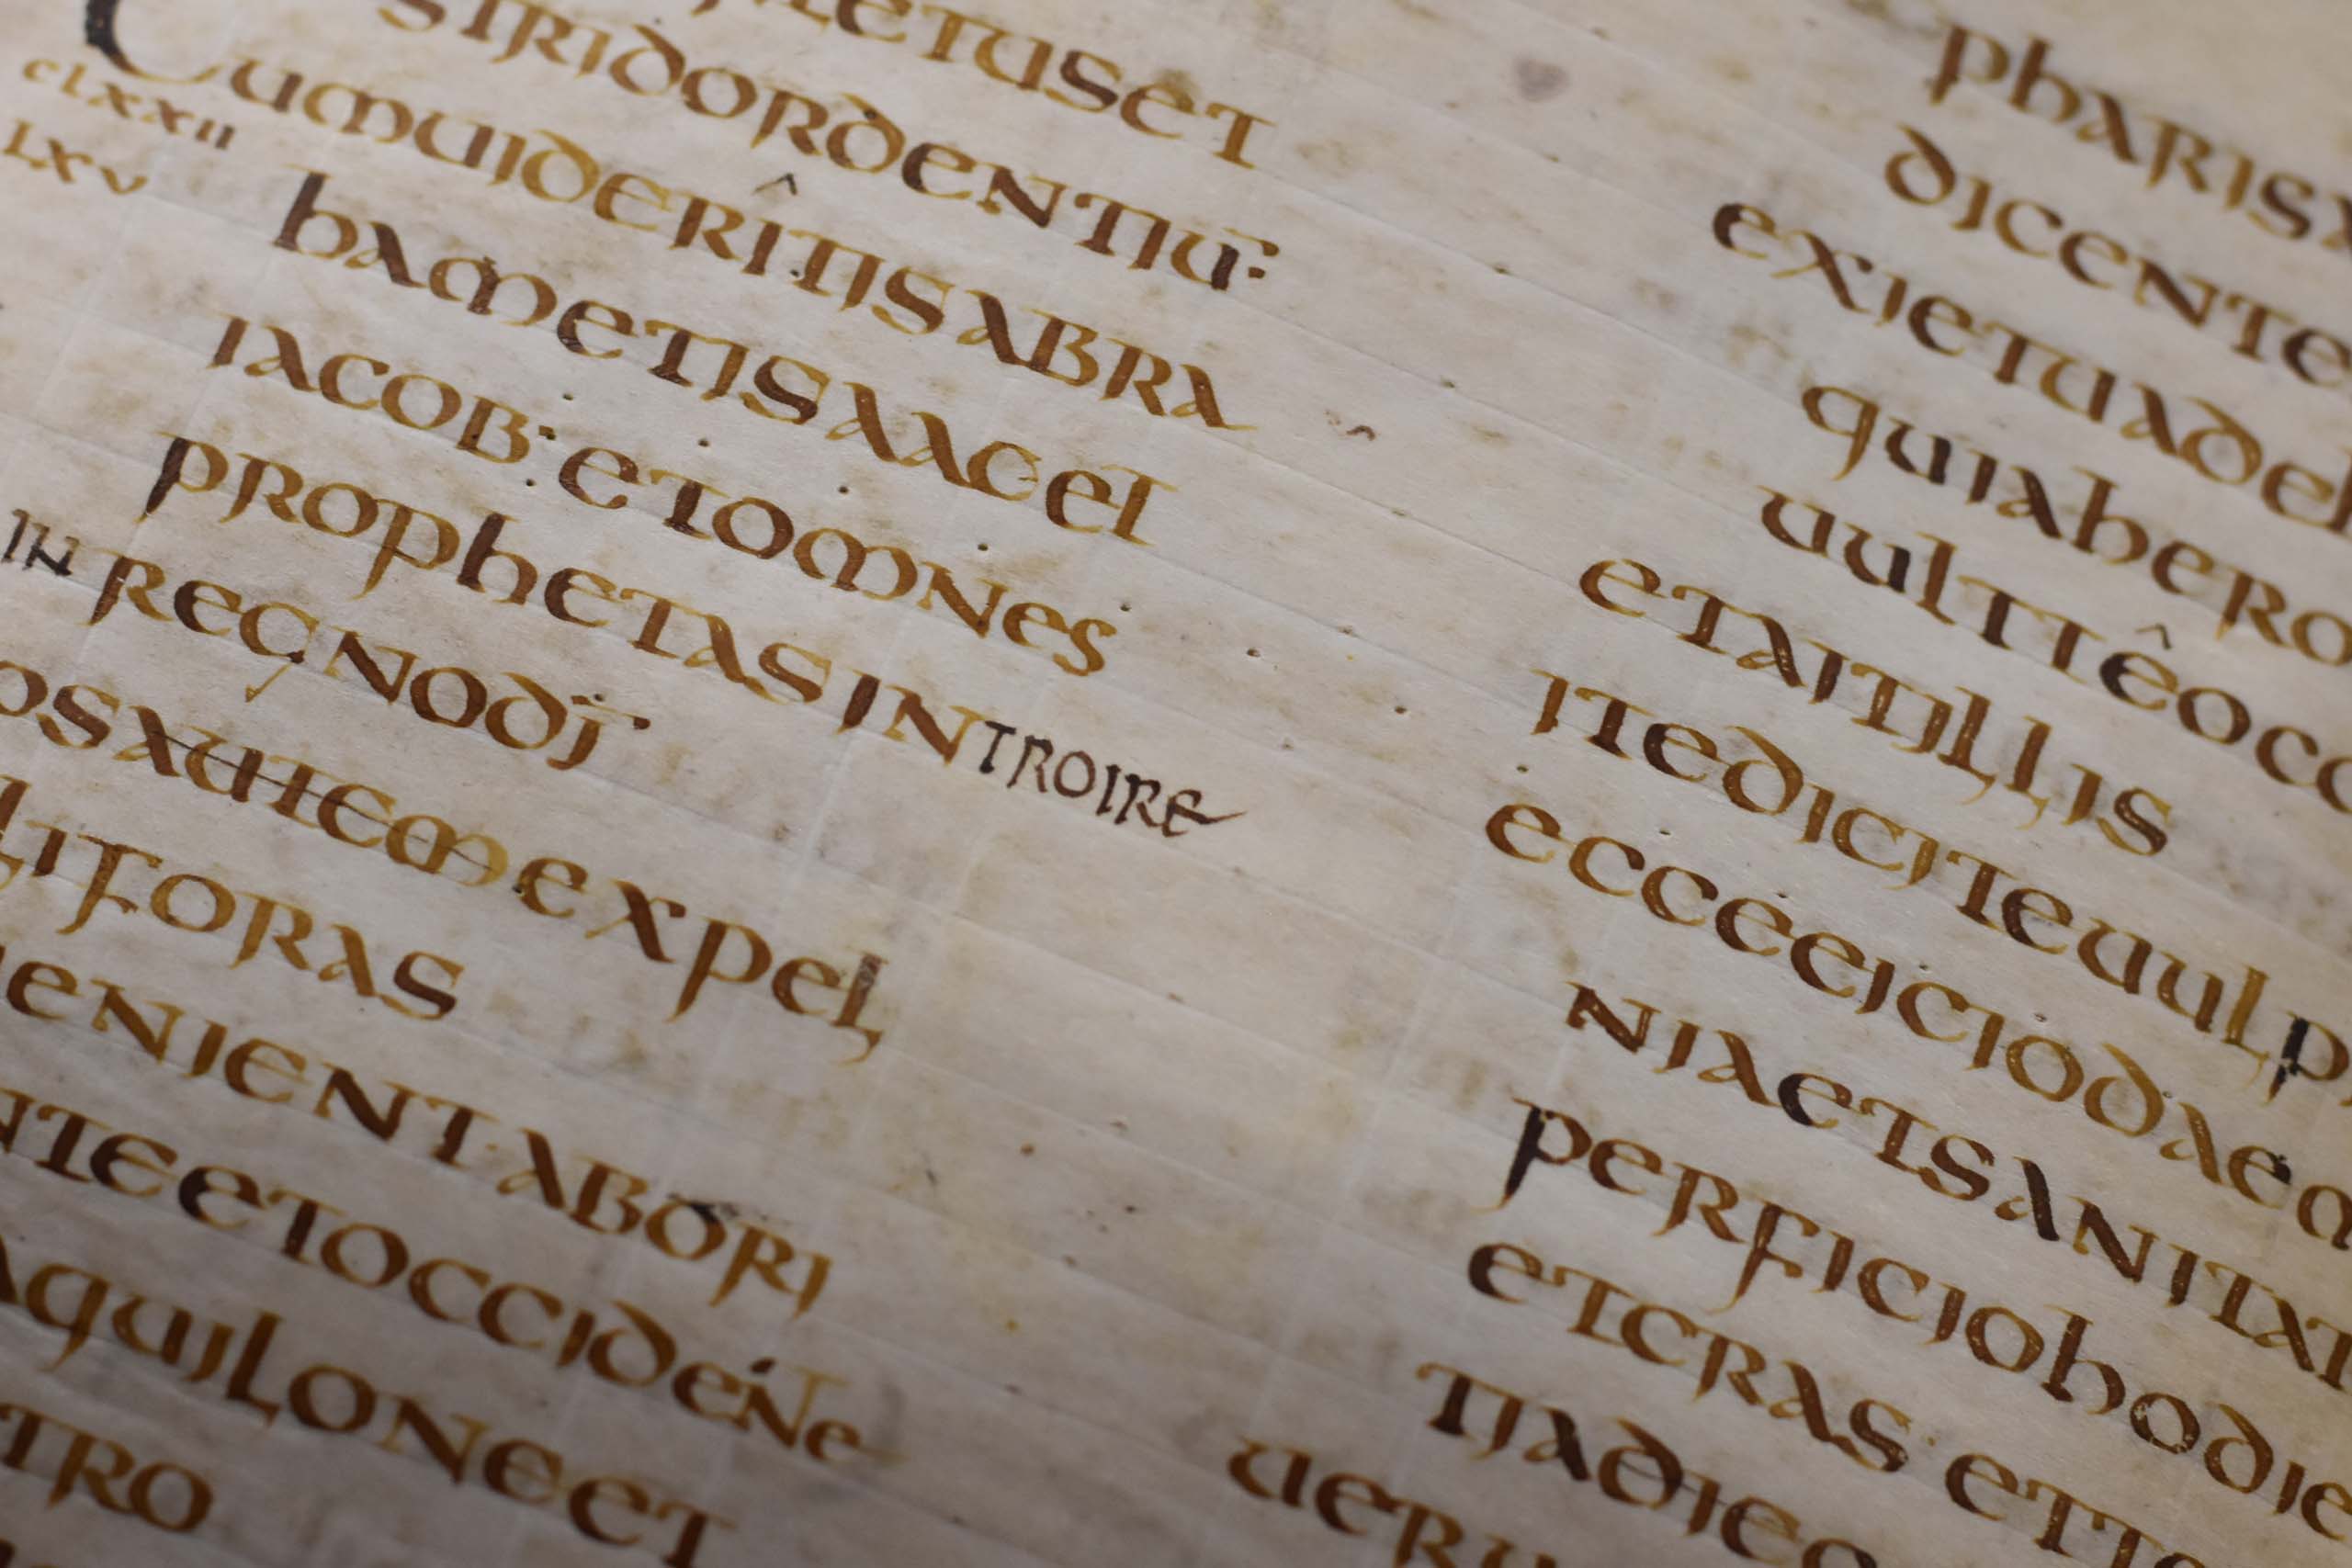 letuset
stridordentiū:
Cumuiderîtisabra
clxxii
lxv
hametisaacet
iacob· etomnes
prophetasintroire
in regnodī
osautemexpel
liforas
enientabori
nteetoccidente
aquiloneet
tro
pharisa
dicente
exietuade
quiahero
uulttêocc
etaitillis
itediciteuulp
ecceeiciodaem
niaetsanitat
perficiohodie
etcras· ette
tiadiec
ueru